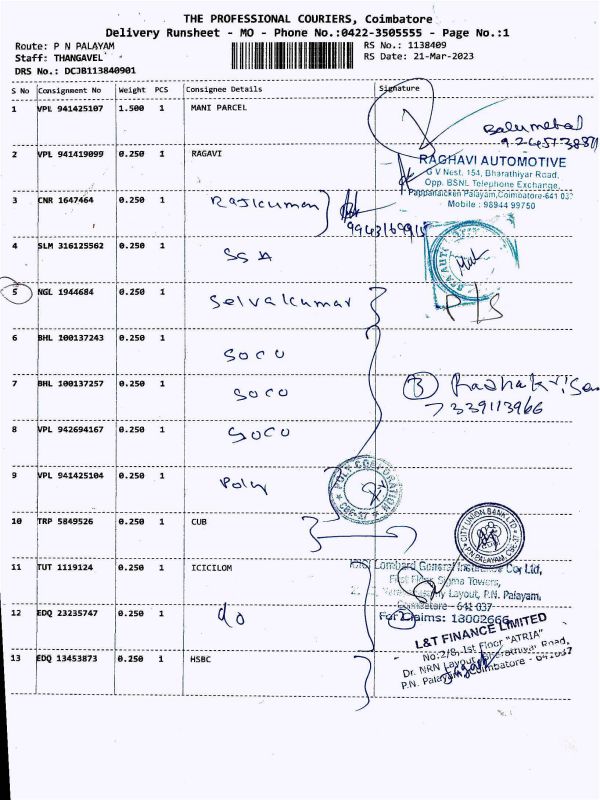 THE PROFESSIONAL COURIERS, Coimbatore
Delivery Runsheet - MO - Phone No.:0422-3505555 - Page No.:1
Route: P N PALAYAM
RS No.: 1138409
Staff: THANGAVEL
RS Date: 21-Mar-2023
DRS No.: DCJB113840901
S No Consignment No Weight PCS Consignee Details Signature
1 VPL 941425107 1.500 1 MANI PARCEL
2 VPL 941419099 0.250 1 RAGAVI
RAGHAVI AUTOMOTIVE
G V Nest, 154, Bharathiyar Road,
Opp. BSNL Telephone Exchange,
Pappanaicken Palayam, Coimbatore-641 037
Mobile : 98944 99750
3 CNR 1647464 0.250 1 Rajkumar
4 SLM 316125562 0.250 1 SSA
5 NGL 1944684 0.250 1 Selvakumar
6 BHL 100137243 0.250 1 SOCO
7 BHL 100137257 0.250 1 SOCO
3
7339113966
8 VPL 942694167 0.250 1 SOCO
9 VPL 941425104 0.250 1 Poly
POLY CORPORATION
CBE-37
10 TRP 5849526 0.250 1 CUB
CITY UNION BANK LTD
P.N PALAYAM, CBE-37
11 TUT 1119124 0.250 1 ICICILOM
ICICI Lombard General Insurance Co. Ltd,
First Floor, Sigma Towers,
Layout, P.N. Palayam,
Coimbatore - 641 037
For Claims: 18002666
12 EDQ 23235747 0.250 1 do
2
L&T FINANCE LIMITED
No:2/8, 1st Floor "ATRIA"
Dr. NRN Layout, Bharathiyar Road,
P.N. Palayam, Coimbatore - 641037
13 EDQ 13453873 0.250 1 HSBC